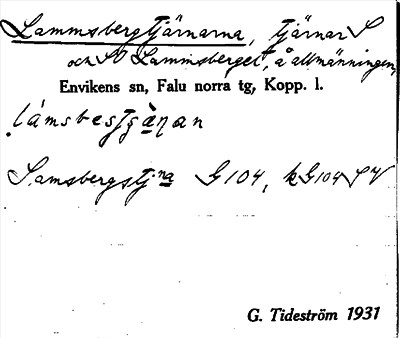 Lammsbergtjärnarna, tjärnar S
och SO Lammsberget, å allmänningen,
Envikens sn, Falu norra tg, Kopp. l.
Lamsbergstj:na G104, kG104 SV
G. Tideström 1931